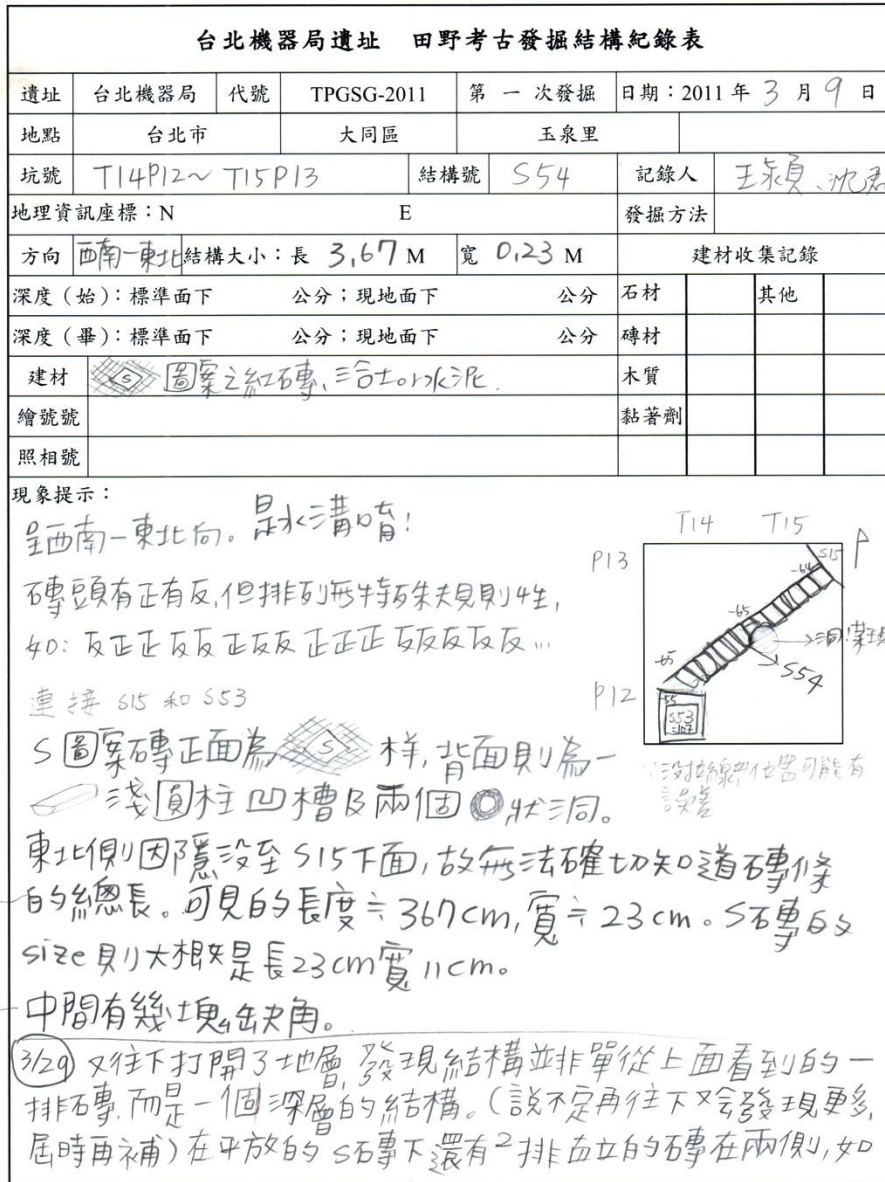 台北機器局遺址 田野考古發掘結構紀錄表
遺址 台北機器局 代號 TPGSG-2011 第 一 次發掘 日期：2011 年 3 月 9 日
地點 台北市 大同區 玉泉里
坑號 T14P12~T15P13 結構號 S54 記錄人 王潁、沈君
地理資訊座標：N E 發掘方法
方向 西南-東北 結構大小：長 3.67 M 寬 0.23 M 建材收集記錄
深度（始）：標準面下 公分；現地面下 公分 石材 其他
深度（畢）：標準面下 公分；現地面下 公分 磚材
建材 S 圖案之紅磚、三合土or水泥. 木質
繪號號 黏著劑
照相號
現象提示：
呈西南-東北向。是水溝唷!
磚頭有正有反,但排列無特殊夫規則性,
如: 反正正反反正反反正正正反反反反反…
連接 S15 和 S53
S圖案磚正面為 S 樣,背面則為一
淺圓柱凹槽及兩個 狀洞。
東北側因隱沒至 S15下面,故無法確切知道磚條
的總長。可見的長度≒367cm,寬≒23cm。S磚的
size則大概是長23cm寬11cm。
中間有幾塊缺角。
3/29 又往下打開了地層,發現結構並非單從上面看到的一
排磚,而是一個深層的結構。(說不定再往下又會發現更多,
屆時再補)在平放的S磚下還有2排直立的磚在兩側,如
T14 T15
P13 S15
-64
-65
洞!
S54
P12 -55
S53
沒拉線 位置可能有
誤差